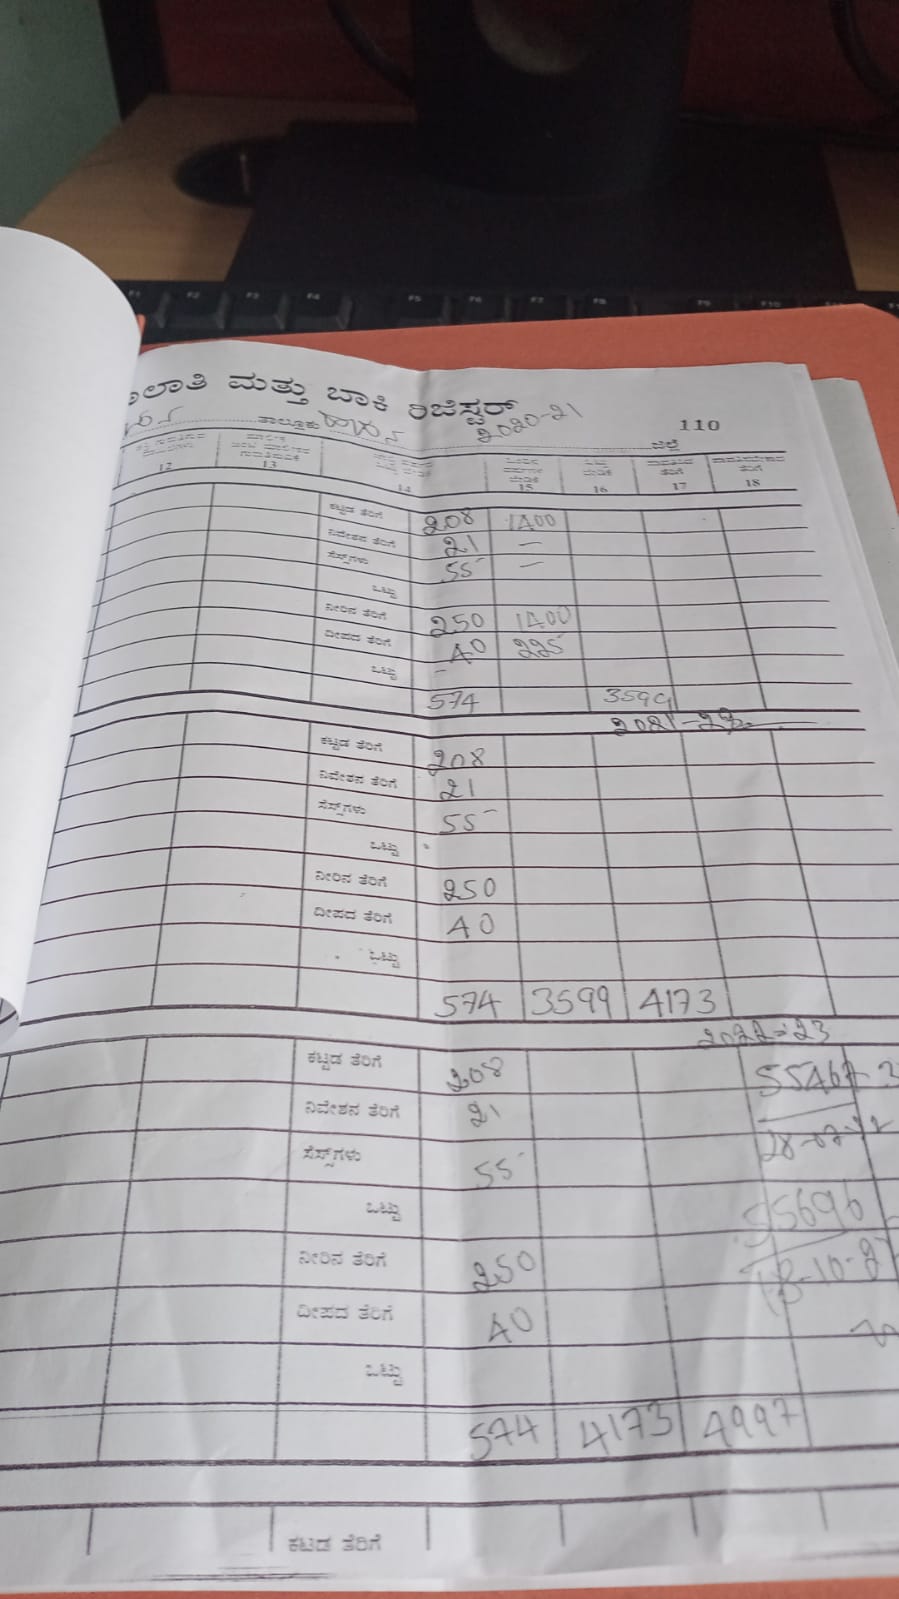 ಮತ್ತು ಬಾಕಿ ರಿಜಿಸ್ಟರ್
2020-21
ತಾಲ್ಲೂಕು ಜಿಲ್ಲೆ 110
12 13 14 15 16 17 18
ಕಟ್ಟಡ ತೆರಿಗೆ 208 1400
ನಿವೇಶನ ತೆರಿಗೆ 21 —
ಸೆಸ್ಸ್‌ಗಳು 55 —
ಒಟ್ಟು
ನೀರಿನ ತೆರಿಗೆ 250 1400
ದೀಪದ ತೆರಿಗೆ 40 225
ಒಟ್ಟು —
574 3599
ಕಟ್ಟಡ ತೆರಿಗೆ 208
ನಿವೇಶನ ತೆರಿಗೆ 21
ಸೆಸ್ಸ್‌ಗಳು 55
ಒಟ್ಟು
ನೀರಿನ ತೆರಿಗೆ 250
ದೀಪದ ತೆರಿಗೆ 40
ಒಟ್ಟು
574 3599 4173
2022-23
ಕಟ್ಟಡ ತೆರಿಗೆ 208
ನಿವೇಶನ ತೆರಿಗೆ 21
ಸೆಸ್ಸ್‌ಗಳು 55
ಒಟ್ಟು 55696
ನೀರಿನ ತೆರಿಗೆ 250
ದೀಪದ ತೆರಿಗೆ 40
ಒಟ್ಟು
574 4173 4997
ಕಟ್ಟಡ ತೆರಿಗೆ